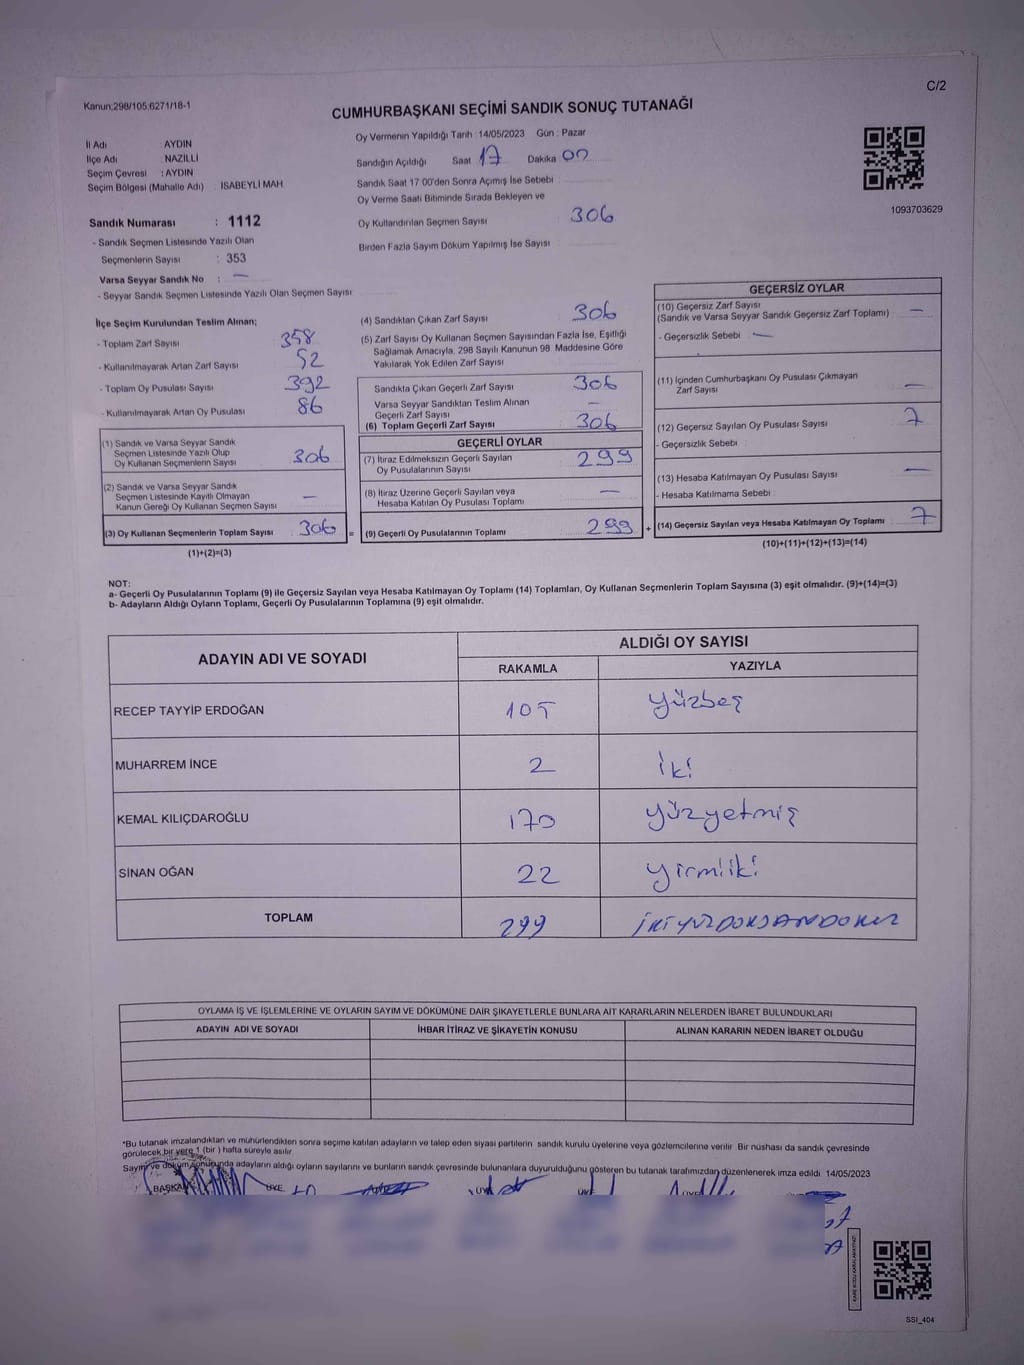 C/2
Kanun,298/105,6271/18-1
CUMHURBAŞKANI SEÇİMİ SANDIK SONUÇ TUTANAĞI
İl Adı AYDIN
İlçe Adı NAZİLLİ
Seçim Çevresi : AYDIN
Seçim Bölgesi (Mahalle Adı) : ISABEYLİ MAH
Sandık Numarası : 1112
- Sandık Seçmen Listesinde Yazılı Olan
Seçmenlerin Sayısı : 353
Varsa Seyyar Sandık No : —
- Seyyar Sandık Seçmen Listesinde Yazılı Olan Seçmen Sayısı
Oy Vermenin Yapıldığı Tarih : 14/05/2023 Gün : Pazar
Sandığın Açıldığı Saat 17 Dakika 00
Sandık Saat 17 00'den Sonra Açımış İse Sebebi
Oy Verme Saati Bitiminde Sırada Bekleyen ve
Oy Kullandırılan Seçmen Sayısı 306
Birden Fazla Sayım Döküm Yapılmış İse Sayısı
1093703629
İlçe Seçim Kurulundan Teslim Alınan;
- Toplam Zarf Sayısı 358
- Kullanılmayarak Artan Zarf Sayısı 52
- Toplam Oy Pusulası Sayısı 392
- Kullanılmayarak Artan Oy Pusulası 86
(1) Sandık ve Varsa Seyyar Sandık
Seçmen Listesinde Yazılı Olup
Oy Kullanan Seçmenlerin Sayısı 306
(2) Sandık ve Varsa Seyyar Sandık
Seçmen Listesinde Kayıtlı Olmayan
Kanun Gereği Oy Kullanan Seçmen Sayısı —
(3) Oy Kullanan Seçmenlerin Toplam Sayısı 306 =
(1)+(2)=(3)
(4) Sandıktan Çıkan Zarf Sayısı 306
(5) Zarf Sayısı Oy Kullanan Seçmen Sayısından Fazla İse, Eşitliği
Sağlamak Amacıyla, 298 Sayılı Kanunun 98 Maddesine Göre
Yakılarak Yok Edilen Zarf Sayısı
Sandıkta Çıkan Geçerli Zarf Sayısı 306
Varsa Seyyar Sandıktan Teslim Alınan
Geçerli Zarf Sayısı —
(6) Toplam Geçerli Zarf Sayısı 306
GEÇERLİ OYLAR
(7) İtiraz Edilmeksizin Geçerli Sayılan
Oy Pusulalarının Sayısı 299
(8) İtiraz Üzerine Geçerli Sayılan veya
Hesaba Katılan Oy Pusulası Toplamı —
(9) Geçerli Oy Pusulalarının Toplamı 299 +
GEÇERSİZ OYLAR
(10) Geçersiz Zarf Sayısı
(Sandık ve Varsa Seyyar Sandık Geçersiz Zarf Toplamı) —
- Geçersizlik Sebebi —
(11) İçinden Cumhurbaşkanı Oy Pusulası Çıkmayan
Zarf Sayısı —
(12) Geçersiz Sayılan Oy Pusulası Sayısı 7
- Geçersizlik Sebebi
(13) Hesaba Katılmayan Oy Pusulası Sayısı —
- Hesaba Katılmama Sebebi
(14) Geçersiz Sayılan veya Hesaba Katılmayan Oy Toplamı 7
(10)+(11)+(12)+(13)=(14)
NOT:
a- Geçerli Oy Pusulalarının Toplamı (9) ile Geçersiz Sayılan veya Hesaba Katılmayan Oy Toplamı (14) Toplamları, Oy Kullanan Seçmenlerin Toplam Sayısına (3) eşit olmalıdır. (9)+(14)=(3)
b- Adayların Aldığı Oyların Toplamı, Geçerli Oy Pusulalarının Toplamına (9) eşit olmalıdır.
ADAYIN ADI VE SOYADI ALDIĞI OY SAYISI
RAKAMLA YAZIYLA
RECEP TAYYİP ERDOĞAN 105 yüzbeş
MUHARREM İNCE 2 iki
KEMAL KILIÇDAROĞLU 170 yüzyetmiş
SİNAN OĞAN 22 yirmiiki
TOPLAM 299 İKİYÜZDOKSANDOKUZ
OYLAMA İŞ VE İŞLEMLERİNE VE OYLARIN SAYIM VE DÖKÜMÜNE DAİR ŞİKAYETLERLE BUNLARA AİT KARARLARIN NELERDEN İBARET BULUNDUKLARI
ADAYIN ADI VE SOYADI İHBAR İTİRAZ VE ŞİKAYETİN KONUSU ALINAN KARARIN NEDEN İBARET OLDUĞU
*Bu tutanak imzalandıktan ve mühürlendikten sonra seçime katılan adayların ve talep eden siyasi partilerin sandık kurulu üyelerine veya gözlemcilerine verilir Bir nüshası da sandık çevresinde
görülecek bir yere 1 (bir ) hafta süreyle asılır
Sayım ve döküm sonunda adayların aldığı oyların sayılarını ve bunların sandık çevresinde bulunanlara duyurulduğunu gösteren bu tutanak tarafımızdan düzenlenerek imza edildi 14/05/2023
BAŞKAN ÜYE
SSI_404